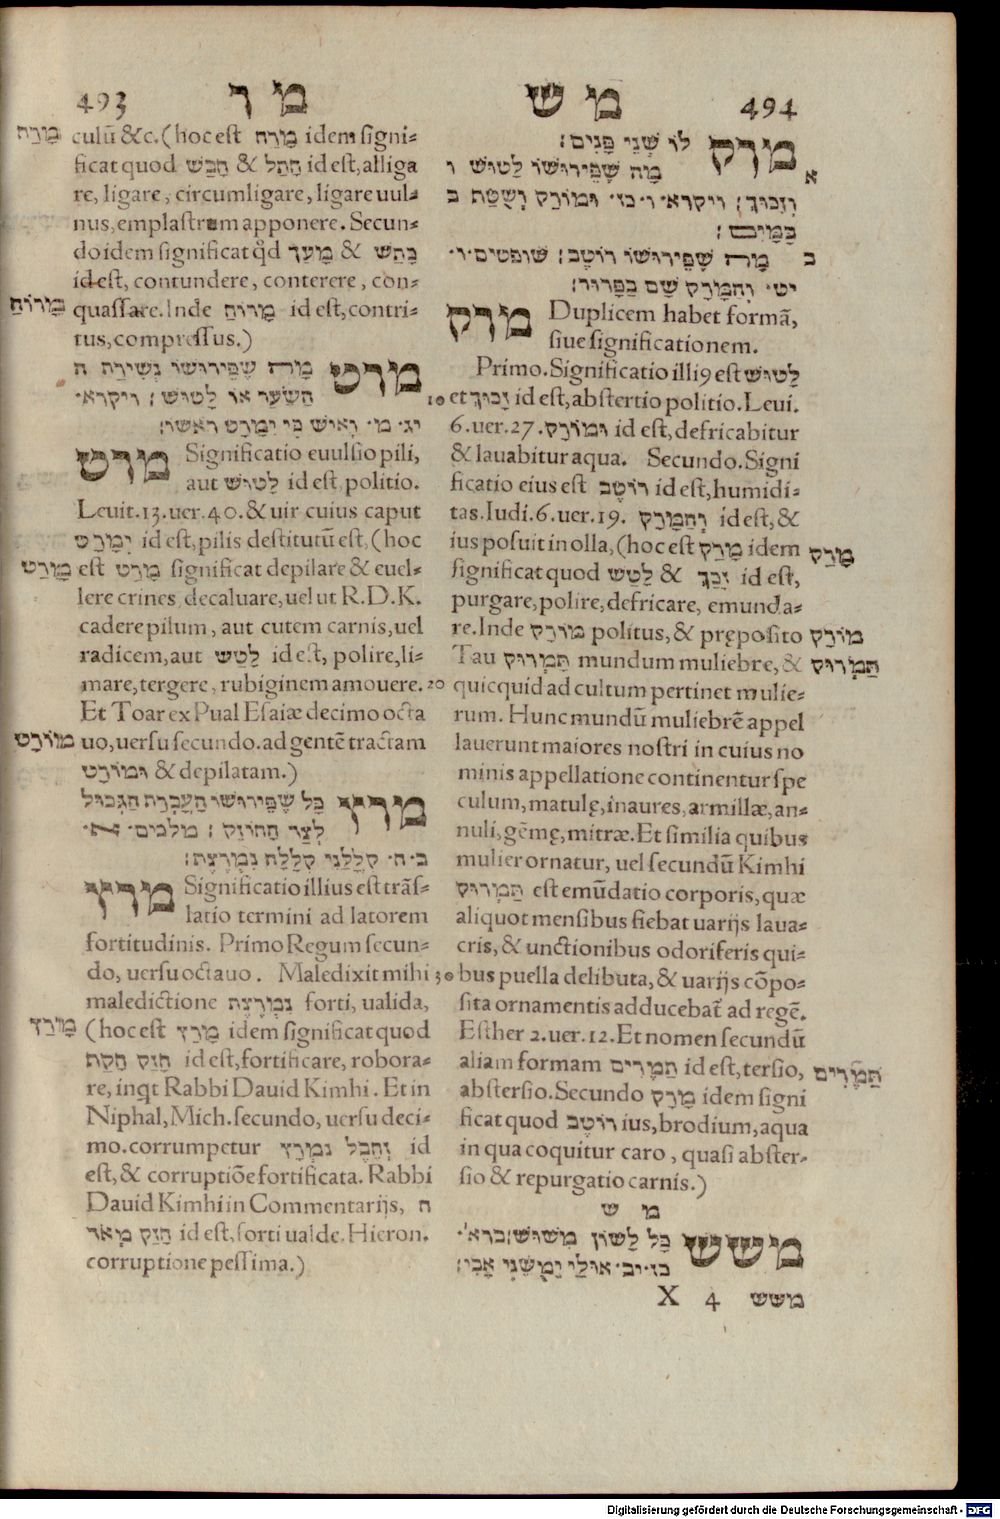 493 מ ר
culū &c. (hoc est מָרַח idem signi=
ficat quod חָהַל & חָבַשׁ id est, alliga
re, ligare, circumligare, ligare uul=
nus, emplastrum apponere. Secun=
do idem significat qđ מָעַךְ &
id est, contundere, conterere, con=
quassare. Inde מָרוֹחַ id est, contri=
tus, compressus.)
מרט מה שפירושו נשירת ה
השער או לטוש: ויקרא
יג. מ. ואיש כי ימרט ראשו:
מרט Significatio euulsio pili,
aut לָטוּשׁ id est, politio.
Leuit. 13. uer. 40. & uir cuius caput
יִמָּרֵט id est, pilis destitutū est, (hoc
est מָרַט significat depilare & euel=
lere crines, decaluare, uel ut R. D. K.
cadere pilum, aut cutem carnis, uel
radicem, aut לָטַשׁ id est, polire, li=
mare, tergere, rubiginem amouere.
Et Toar ex Pual Esaiæ decimo octa
uo, uersu secundo. ad gentē tractam
וּמוֹרָט & depilatam.)
מרץ כל שפירושו העברת הגבול
לצד החוזק: מלכים א
ב. ח. קללני קללה נמרצת:
מרץ Significatio illius est trās=
latio termini ad latorem
fortitudinis. Primo Regum secun=
do, uersu octauo. Maledixit mihi
maledictione נִמְרֶצֶת forti, ualida,
(hoc est מָרַץ idem significat quod
חָזַק id est, fortificare, robora=
re, inqt Rabbi Dauid Kimhi. Et in
Niphal, Mich. secundo, uersu deci=
mo. corrumpetur וְחֶבֶל נִמְרָץ id
est, & corruptiōe fortificata. Rabbi
Dauid Kimhi in Commentarijs, ה
חָזָק מְאֹד id est, forti ualde. Hieron.
corruptione pessima.)
מָרַח
מָרוֹחַ
מָרַט
מוֹרָט
מָרַץ
10
20
30
מ ש 494
מרק לו שני פנים:
א מה שפירושו לטוש ו
וזכוך: ויקרא. ו. כז. ומורק ושטף ב
במים:
ב מה שפירושו רוטב: שופטים. ו.
יט. והמרק שם בפרור:
מרק Duplicem habet formā,
siue significationem.
Primo. Significatio illi9 est לָטוּשׁ
et זָכוּךְ id est, abstertio politio. Leui.
6. uer. 27. וּמוֹרַק id est, defricabitur
& lauabitur aqua. Secundo. Signi
ficatio eius est רוֹטֶב id est, humidi=
tas. Iudi. 6. uer. 19. וְהַמָּרַק id est, &
ius posuit in olla, (hoc est מָרַק idem
significat quod לָטַשׁ & זָכַךְ id est,
purgare, polire, defricare, emunda=
re. Inde מוֹרַק politus, & pręposito
Tau תַּמְרוּק mundum muliebre, &
quicquid ad cultum pertinet mulie=
rum. Hunc mundū muliebrē appel
lauerunt maiores nostri in cuius no
minis appellatione continentur spe
culum, matulę, inaures, armillæ, an=
nuli, gēmę, mitræ. Et similia quibus
mulier ornatur, uel secundū Kimhi
תַּמְרוּק est emūdatio corporis, quæ
aliquot mensibus fiebat uarijs laua=
cris, & unctionibus odoriferis qui=
bus puella delibuta, & uarijs cōpo=
sita ornamentis adducebat̄ ad regē.
Esther 2. uer. 12. Et nomen secundū
aliam formam תַּמְרִים id est, tersio,
abstersio. Secundo מָרַק idem signi
ficat quod רוֹטֶב ius, brodium, aqua
in qua coquitur caro, quasi abster=
sio & repurgatio carnis.)
מָרַק
מוֹרַק
תַּמְרוּק
תַּמְרִים
מ ש
משש כל לשון משוש: ברא'
כז. יב. אולי ימשני אבי:
X 4 משש
Digitalisierung gefördert durch die Deutsche Forschungsgemeinschaft - DFG